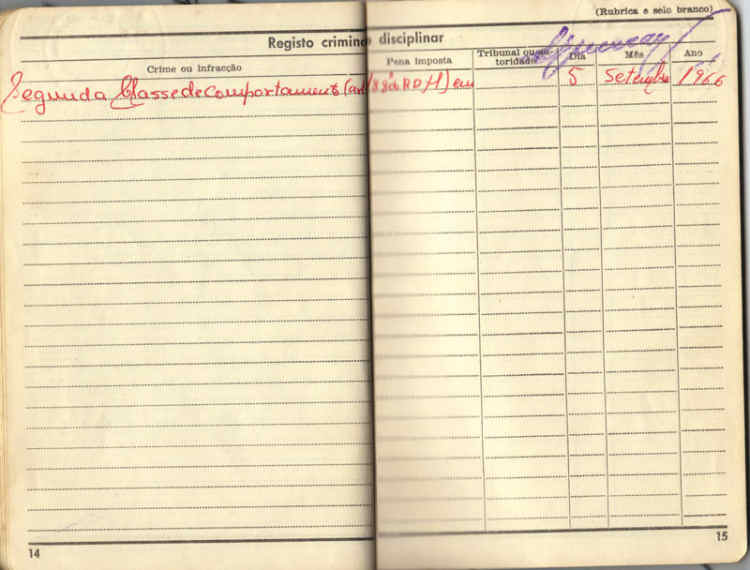 (Rubrica e selo branco)
Registo crimin disciplinar
Crime ou infracção Pena imposta Tribunal que toridade Dia Mês Ano
Segunda Classe de Comportamento (art.º 188 do RDM) em 5 Setembro 1966
14 15